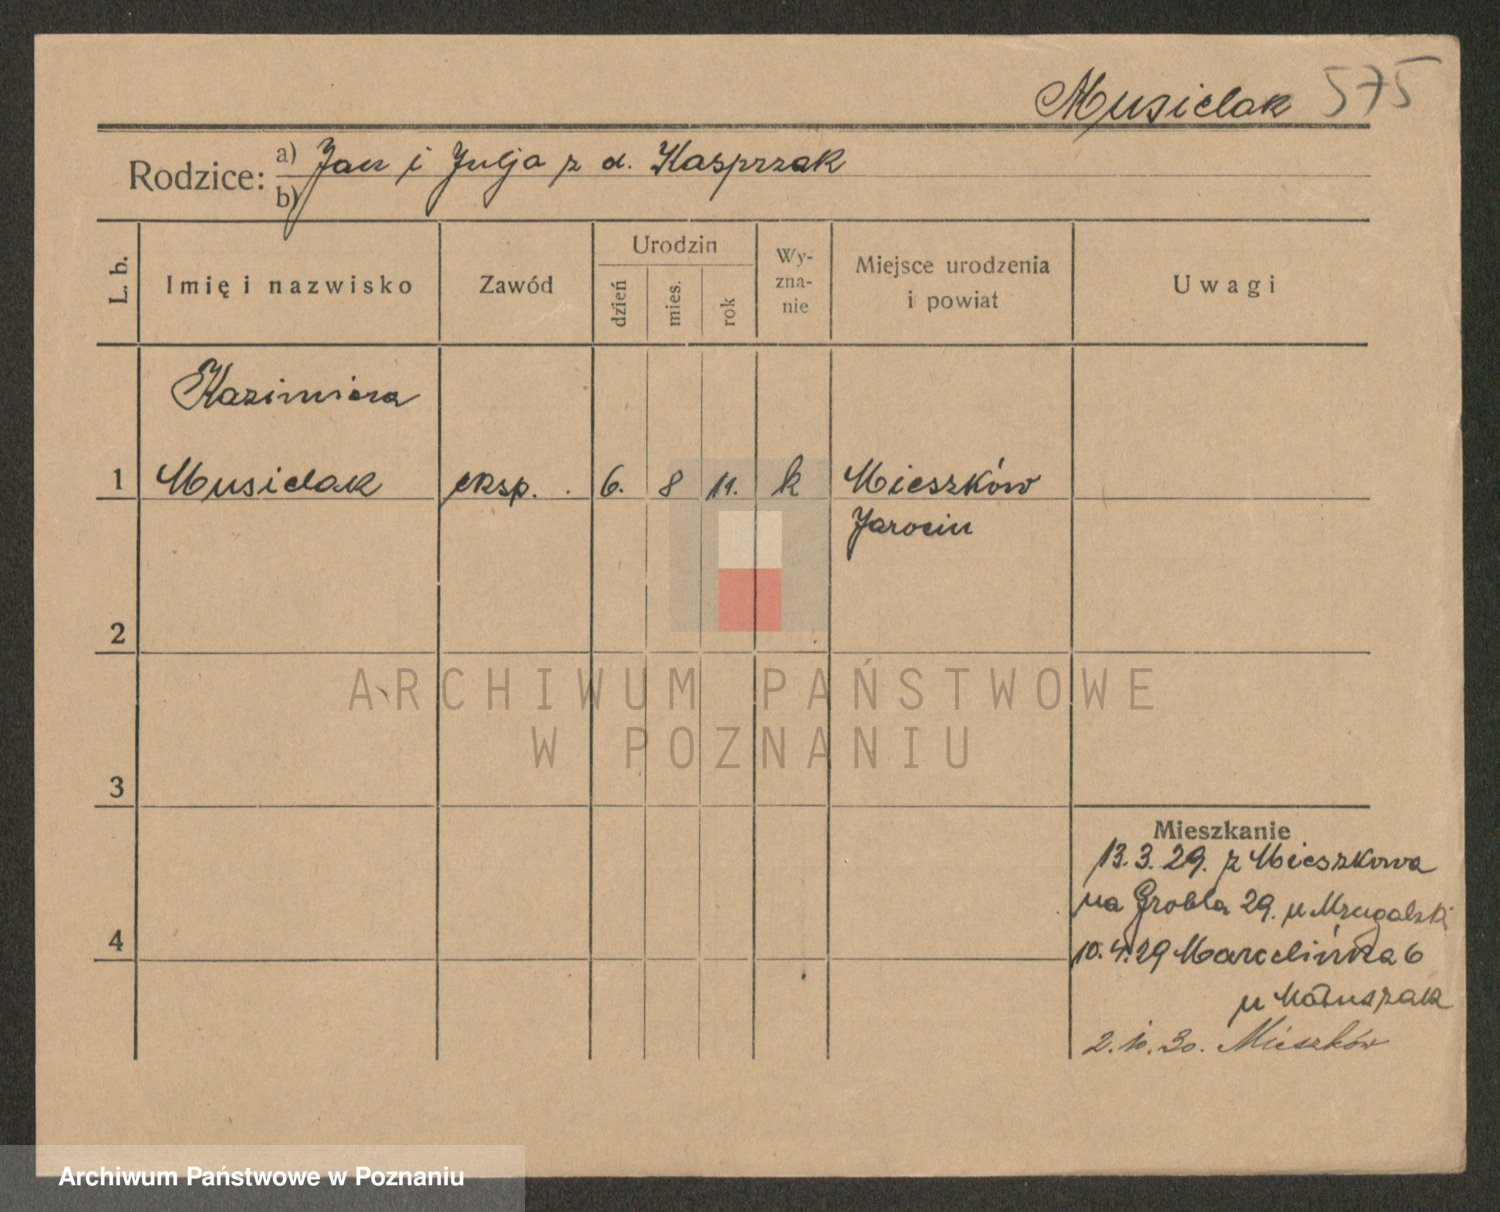 Musielak 575
Rodzice: a) Jan i Julja z d. Kasprzak
b)
L. b.
Imię i nazwisko
Zawód
Urodzin
dzień
mies.
rok
Wy-
zna-
nie
Miejsce urodzenia
i powiat
Uwagi
Kazimiera
1 Musielak eksp. 6. 8 11. k Mieszków
Jarocin
2
ARCHIWUM PAŃSTWOWE
W POZNANIU
3
Mieszkanie
13. 3. 29. z Mieszkowa
na Grobla 29. u Mzugalski
4
10. 4. 29 Marcelińska 6
u Matuszak
2. 10. 30. Mieszków
Archiwum Państwowe w Poznaniu